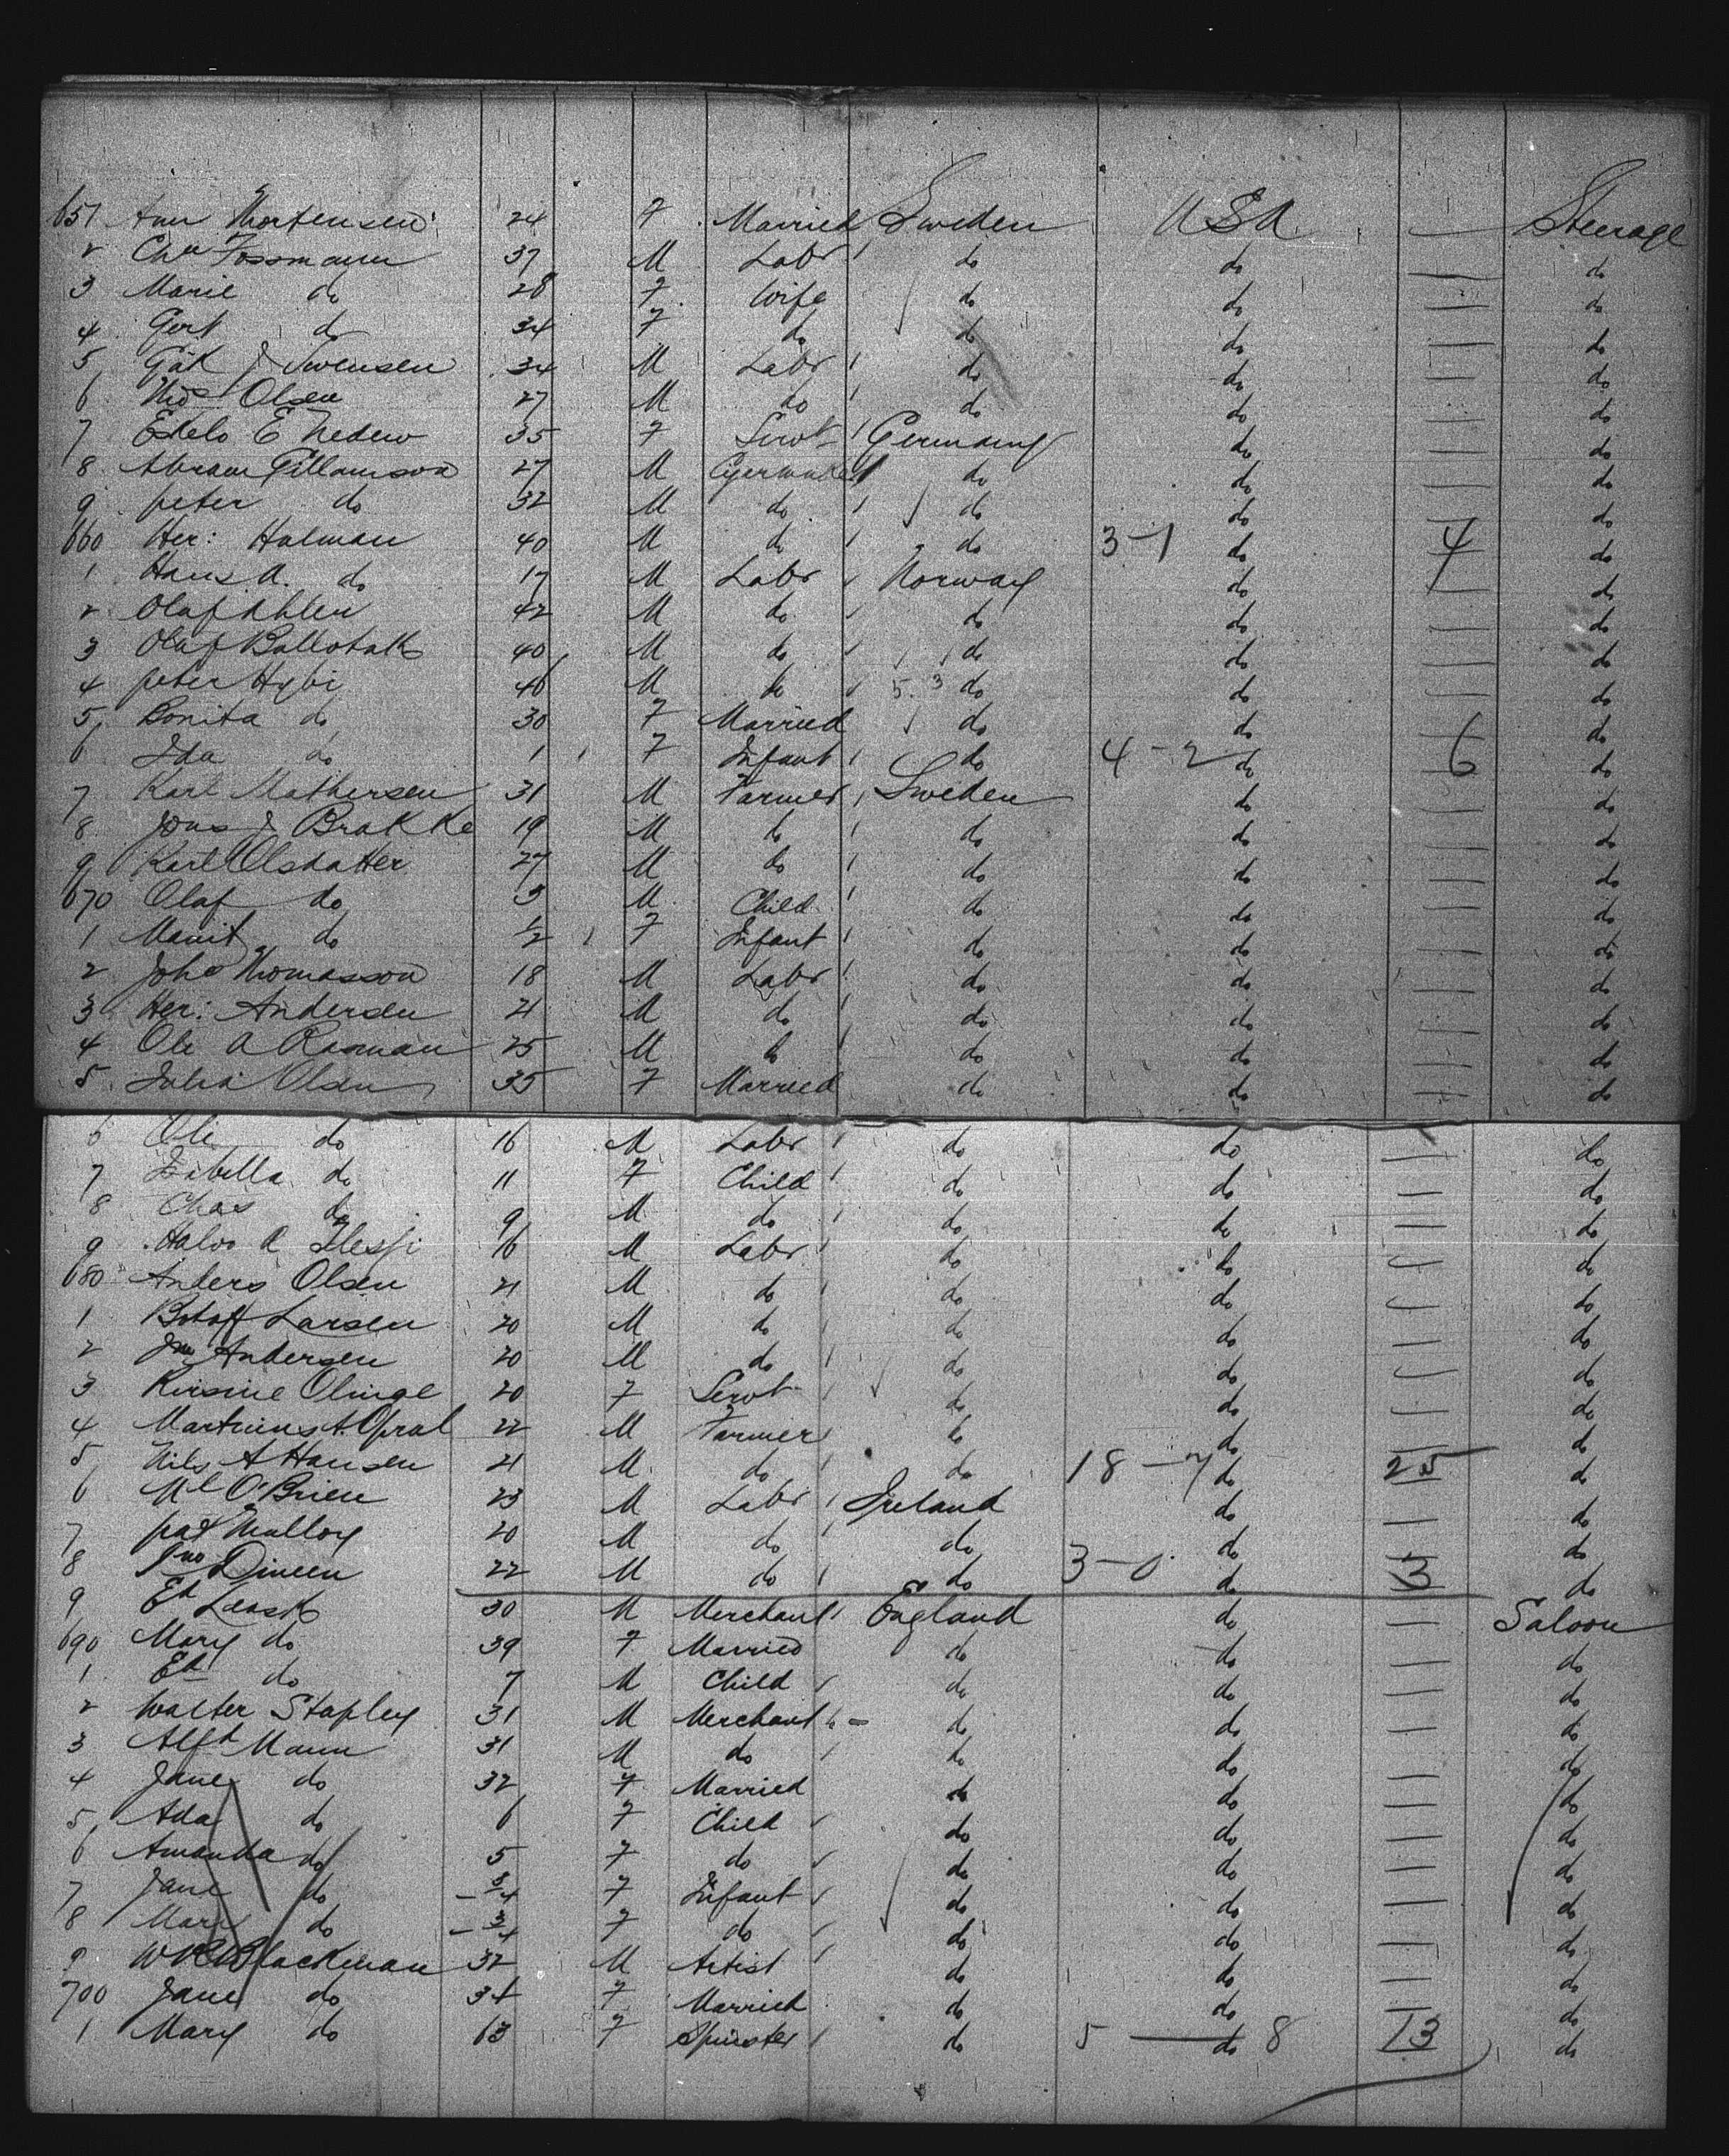 651 Ann Mortensen 24 F Married Sweden USA — Steerage
2 Chn Fossmann 37 M Labr do do — do
3 Marie do 28 F Wife do do — do
4 Gert do 34 F do do do — do
5 J Swensen 34 M Labr do do — do
6 Olsen 27 M do do do — do
7 E 35 F Servt Germany do — do
8 Abram 27 M do do — do
9 peter do 32 M do do do — do
660 Her: Halman 40 M do do 3-1 do 4 do
1 Hans A. do 17 M Labr Norway do — do
2 Olaf Ahlen 42 M do do do — do
3 Olaf 40 M do do do — do
4 peter Hybi 40 M do 5. 3 do do — do
5 Bonita do 30 F Married do do — do
6 Ida do 1 F Infant do 4-2 do 6 do
7 Karl Mathersen 31 M Farmer Sweden do — do
8 Jons J Brakke 19 M do do do — do
9 Karl Olsdatter 27 M do do do — do
670 Olaf do 3 M Child do do — do
1 Marit do 1/2 F Infant do do — do
2 Joh Thomasson 18 M Labr do do — do
3 Her: Andersen 21 M do do do — do
4 Ole A Rasman 25 M do do do — do
5 Julia Olsen 35 F Married do do — do
6 Ole do 16 M Labr do do — do
7 Isabella do 11 F Child do do — do
8 Chas do 9 M do do do — do
9 Halvo A 16 M Labr do do — do
680 Anders Olsen 21 M do do do — do
1 Larsen 20 M do do do — do
2 Jno Andersen 20 M do do do — do
3 Kirsine Olinge 20 F Servt do do — do
4 Martinus A. Opral 22 M Farmer do do — do
5 Nils A Hansen 21 M do do 18-7 do 25 do
6 Ml O'Brien 23 M Labr Ireland do — do
7 pat Mulloy 20 M do do do — do
8 Jno Dineen 22 M do do 3-0 do 3 do
9 Ed Leask 30 M Merchant England do — Saloon
690 Mary do 39 F Married do do — do
1 Ed do 7 M Child do do — do
2 Walter Stapley 31 M Merchant do do — do
3 Alfd Mann 31 M do do do — do
4 Jane do 32 F Married do do — do
5 Ada do 6 F Child do do — do
6 Amanda do 5 F do do do — do
7 Jane do 3/4 F Infant do do — do
8 Mary do 3/4 F do do do — do
9 Blackman 32 M Artist do do — do
700 Jane do 34 F Married do do — do
1 Mary do 63 F Spinster do 5 — do 8 13 do